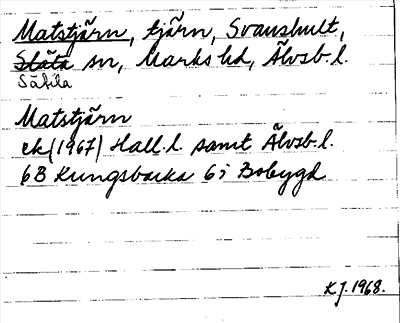 Matstjärn, tjärn, Svanshult,
Släta sn, Marks hd, Älvsb. l.
Sätila
Matstjärn
ek (1967) Hall. l. samt Älvsb. l.
6B Kungsbacka 6i Bobygd
KJ. 1968.